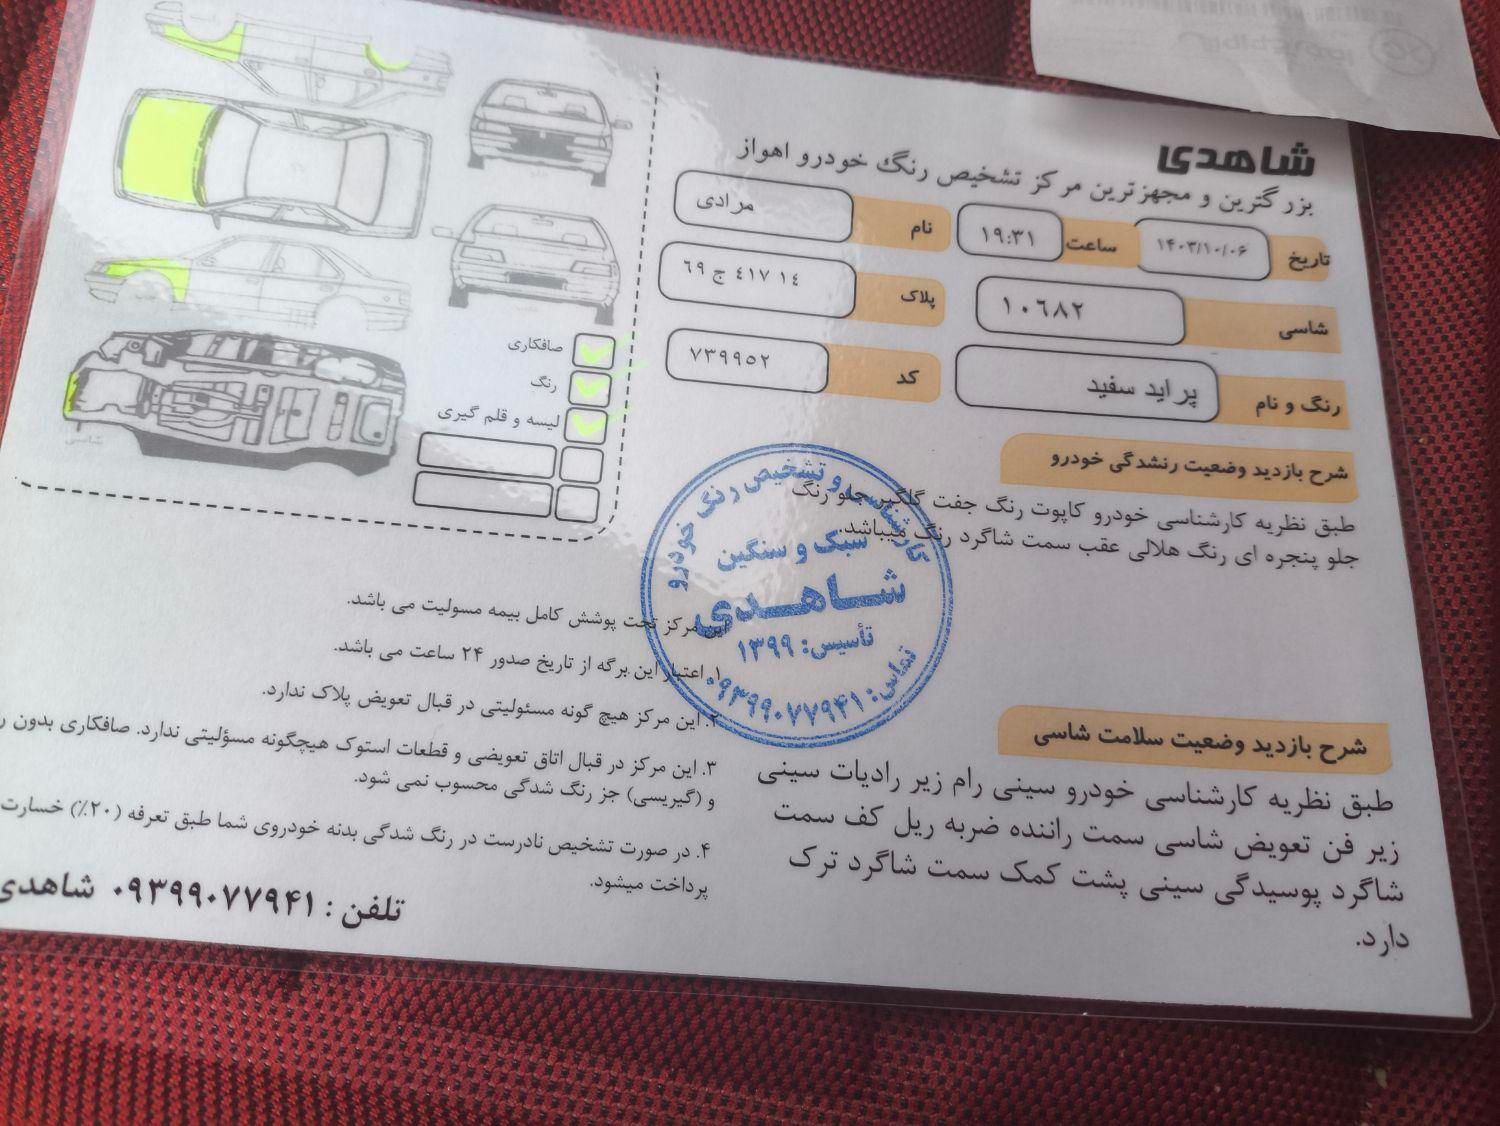 شاهدی
بزرگترین و مجهزترین مرکز تشخیص رنگ خودرو اهواز
تاریخ ۱۴۰۳/۱۰/۰۶ ساعت ۱۹:۳۱ نام مرادی
شاسی ۱۰۶۸۲ پلاک ۶۹ ج ۴۱۷ ۱۴
رنگ و نام پراید سفید کد ۷۳۹۹۵۲
شرح بازدید وضعیت رنشدگی خودرو
طبق نظریه کارشناسی خودرو کاپوت رنگ جفت گلگیر جلو رنگ
جلو پنجره ای رنگ هلالی عقب سمت شاگرد رنگ میباشد.
شرح بازدید وضعیت سلامت شاسی
طبق نظریه کارشناسی خودرو سینی رام زیر رادیات سینی
زیر فن تعویض شاسی سمت راننده ضربه ریل کف سمت
شاگرد پوسیدگی سینی پشت کمک سمت شاگرد ترک
دارد.
کارشناسی و تشخیص رنگ خودرو
سبک و سنگین
شاهدی
تأسیس: ۱۳۹۹
تماس: ۰۹۳۹۹۰۷۷۹۴۱
صافکاری
رنگ
لیسه و قلم گیری
جلو
عقب
شاسی
این مرکز تحت پوشش کامل بیمه مسولیت می باشد.
۱. اعتبار این برگه از تاریخ صدور ۲۴ ساعت می باشد.
۲. این مرکز هیچ گونه مسئولیتی در قبال تعویض پلاک ندارد.
۳. این مرکز در قبال اتاق تعویضی و قطعات استوک هیچگونه مسؤلیتی ندارد. صافکاری بدون ر
و (گیریسی) جز رنگ شدگی محسوب نمی شود.
۴. در صورت تشخیص نادرست در رنگ شدگی بدنه خودروی شما طبق تعرفه (۲۰٪) خسارت
پرداخت میشود.
تلفن : ۰۹۳۹۹۰۷۷۹۴۱ شاهدی